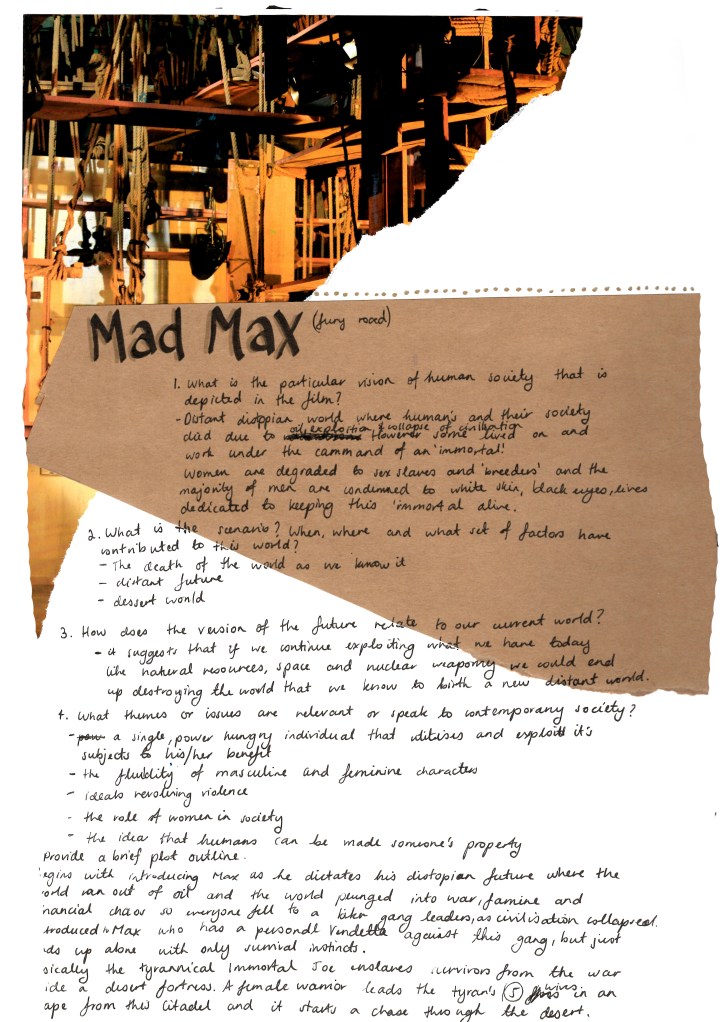 Mad Max (fury road)
1. What is the particular vision of human society that is
depicted in the film?
- Distant distopian world where human's and their society
oil exploition & collapse of civilisation
died due to However some lived on and
work under the command of an 'immortal'
Women are degraded to sex slaves and 'breeders' and the
majority of men are condemned to white skin, black eyes, lives
dedicated to keeping this 'immortal alive.
2. What is the scenario? When, where and what set of factors have
contributed to this world?
- The death of the world as we know it
- distant future
- dessert world
3. How does the version of the future relate to our current world?
- it suggests that if we continue exploiting what we have today
like natural resources, space and nuclear weaponry we could end
up destroying the world that we know to birth a new distant world.
4. What themes or issues are relevant or speak to contemporary society?
- a single, power hungry individual that utilises and exploits it's
subjects to his/her benefit
- the fluidity of masculine and feminine characters
- ideals revolving violence
- the role of women in society
- the idea that humans can be made someone's property
Provide a brief plot outline.
egins with introducing Max as he dictates his distopian future where the
orld ran out of oil and the world plunged into war, famine and
nancial chaos so everyone fell to a biker gang leaders, as civilisation collapsed.
troduced to Max who has a personal vendetta against this gang, but just
ds up alone with only survival instincts.
sically the tyrannical Immortal Joe enslaves survivors from the war
ide a desert fortress. A female warrior leads the tyran's 5 wives in an
ape from this Citadel and it starts a chase through the desert.